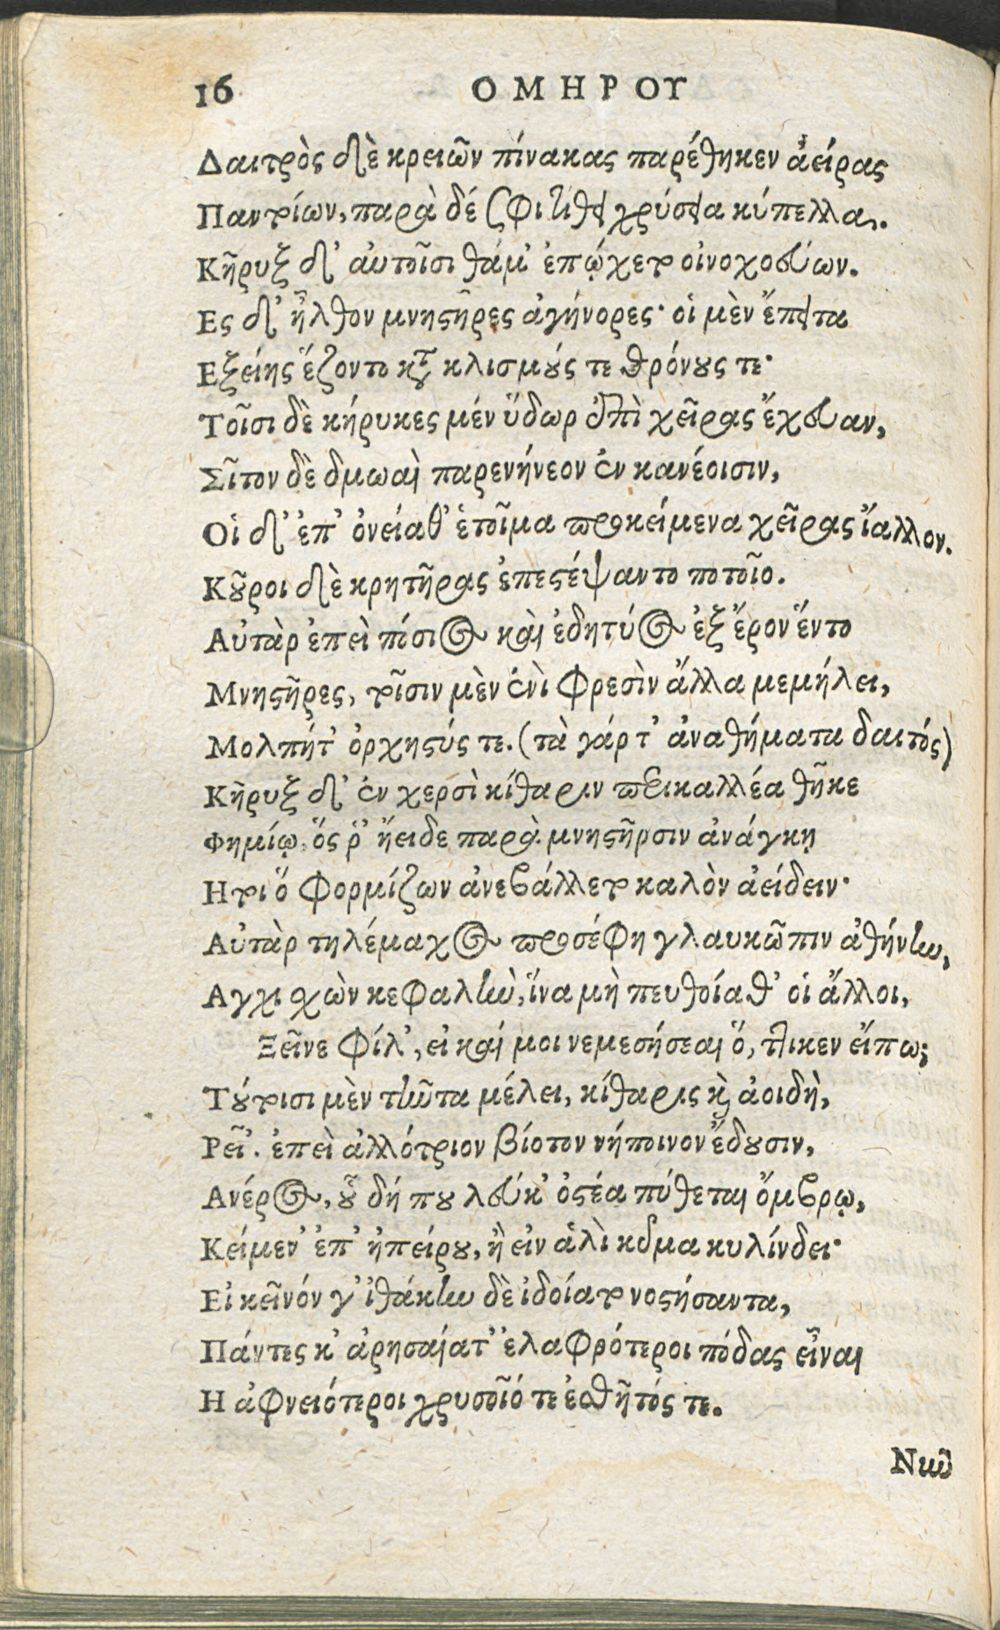 16 ΟΜΗΡΟΥ
Δαιτρὸς δὲ κρειῶν πίνακας παρέθηκεν ἀείρας
Παντοίων, παρὰ δέ σφι τίθει χρύσεια κύπελλα.
Κῆρυξ δ' αὐτοῖσι θάμ' ἐπῴχετο οἰνοχοεύων.
Ες δ' ἦλθον μνηστῆρες ἀγήνορες· οἱ μὲν ἔπειτα
Εξείης ἕζοντο κατὰ κλισμούς τε θρόνους τε·
Τοῖσι δὲ κήρυκες μέν ὕδωρ ἐπὶ χεῖρας ἔχευαν,
Σῖτον δὲ δμωαὶ παρενήνεον ἐν κανέοισιν,
Οἱ δ' ἐπ' ὀνείαθ' ἑτοῖμα προκείμενα χεῖρας ἴαλλον.
Κοῦροι δὲ κρητῆρας ἐπεστέψαντο ποτοῖο.
Αὐτὰρ ἐπεὶ πόσιος καὶ ἐδητύος ἐξ ἔρον ἕντο
Μνηστῆρες, τοῖσιν μὲν ἐνὶ φρεσὶν ἄλλα μεμήλει,
Μολπήτ' ὀρχηστύς τε. (τὰ γάρ τ' ἀναθήματα δαιτός)
Κῆρυξ δ' ἐν χερσὶ κίθαριν περικαλλέα θῆκε
Φημίῳ, ὅς ῥ' ἤειδε παρὰ μνηστῆρσιν ἀνάγκῃ
Ητοι ὅ φορμίζων ἀνεβάλλετο καλὸν ἀείδειν·
Αὐτὰρ τηλέμαχος προσέφη γλαυκῶπιν ἀθήνην,
Αγχι σχὼν κεφαλὴν, ἵνα μὴ πευθοίαθ' οἱ ἄλλοι,
Ξεῖνε φίλ', εἰ καί μοι νεμεσήσεαι ὅ, τι κεν εἴπω;
Τούτοισι μὲν ταῦτα μέλει, κίθαρις καὶ ἀοιδὴ,
Ρεῖ'. ἐπεὶ ἀλλότριον βίοτον νήποινον ἔδουσιν,
Ανέρος, οὗ δή που λεύκ' ὀστέα πύθεται ὄμβρῳ,
Κείμεν' ἐπ' ἠπείρου, ἢ εἰν ἁλὶ κῦμα κυλίνδει·
Εἰ κεῖνόν γ' ἰθάκην δὲ ἰδοίατο νοστήσαντα,
Πάντες κ' ἀρησαίατ' ἐλαφρότεροι πόδας εἶναι
Η ἀφνειότεροι χρυσοῖό τε ἐσθῆτός τε.
Νῦν